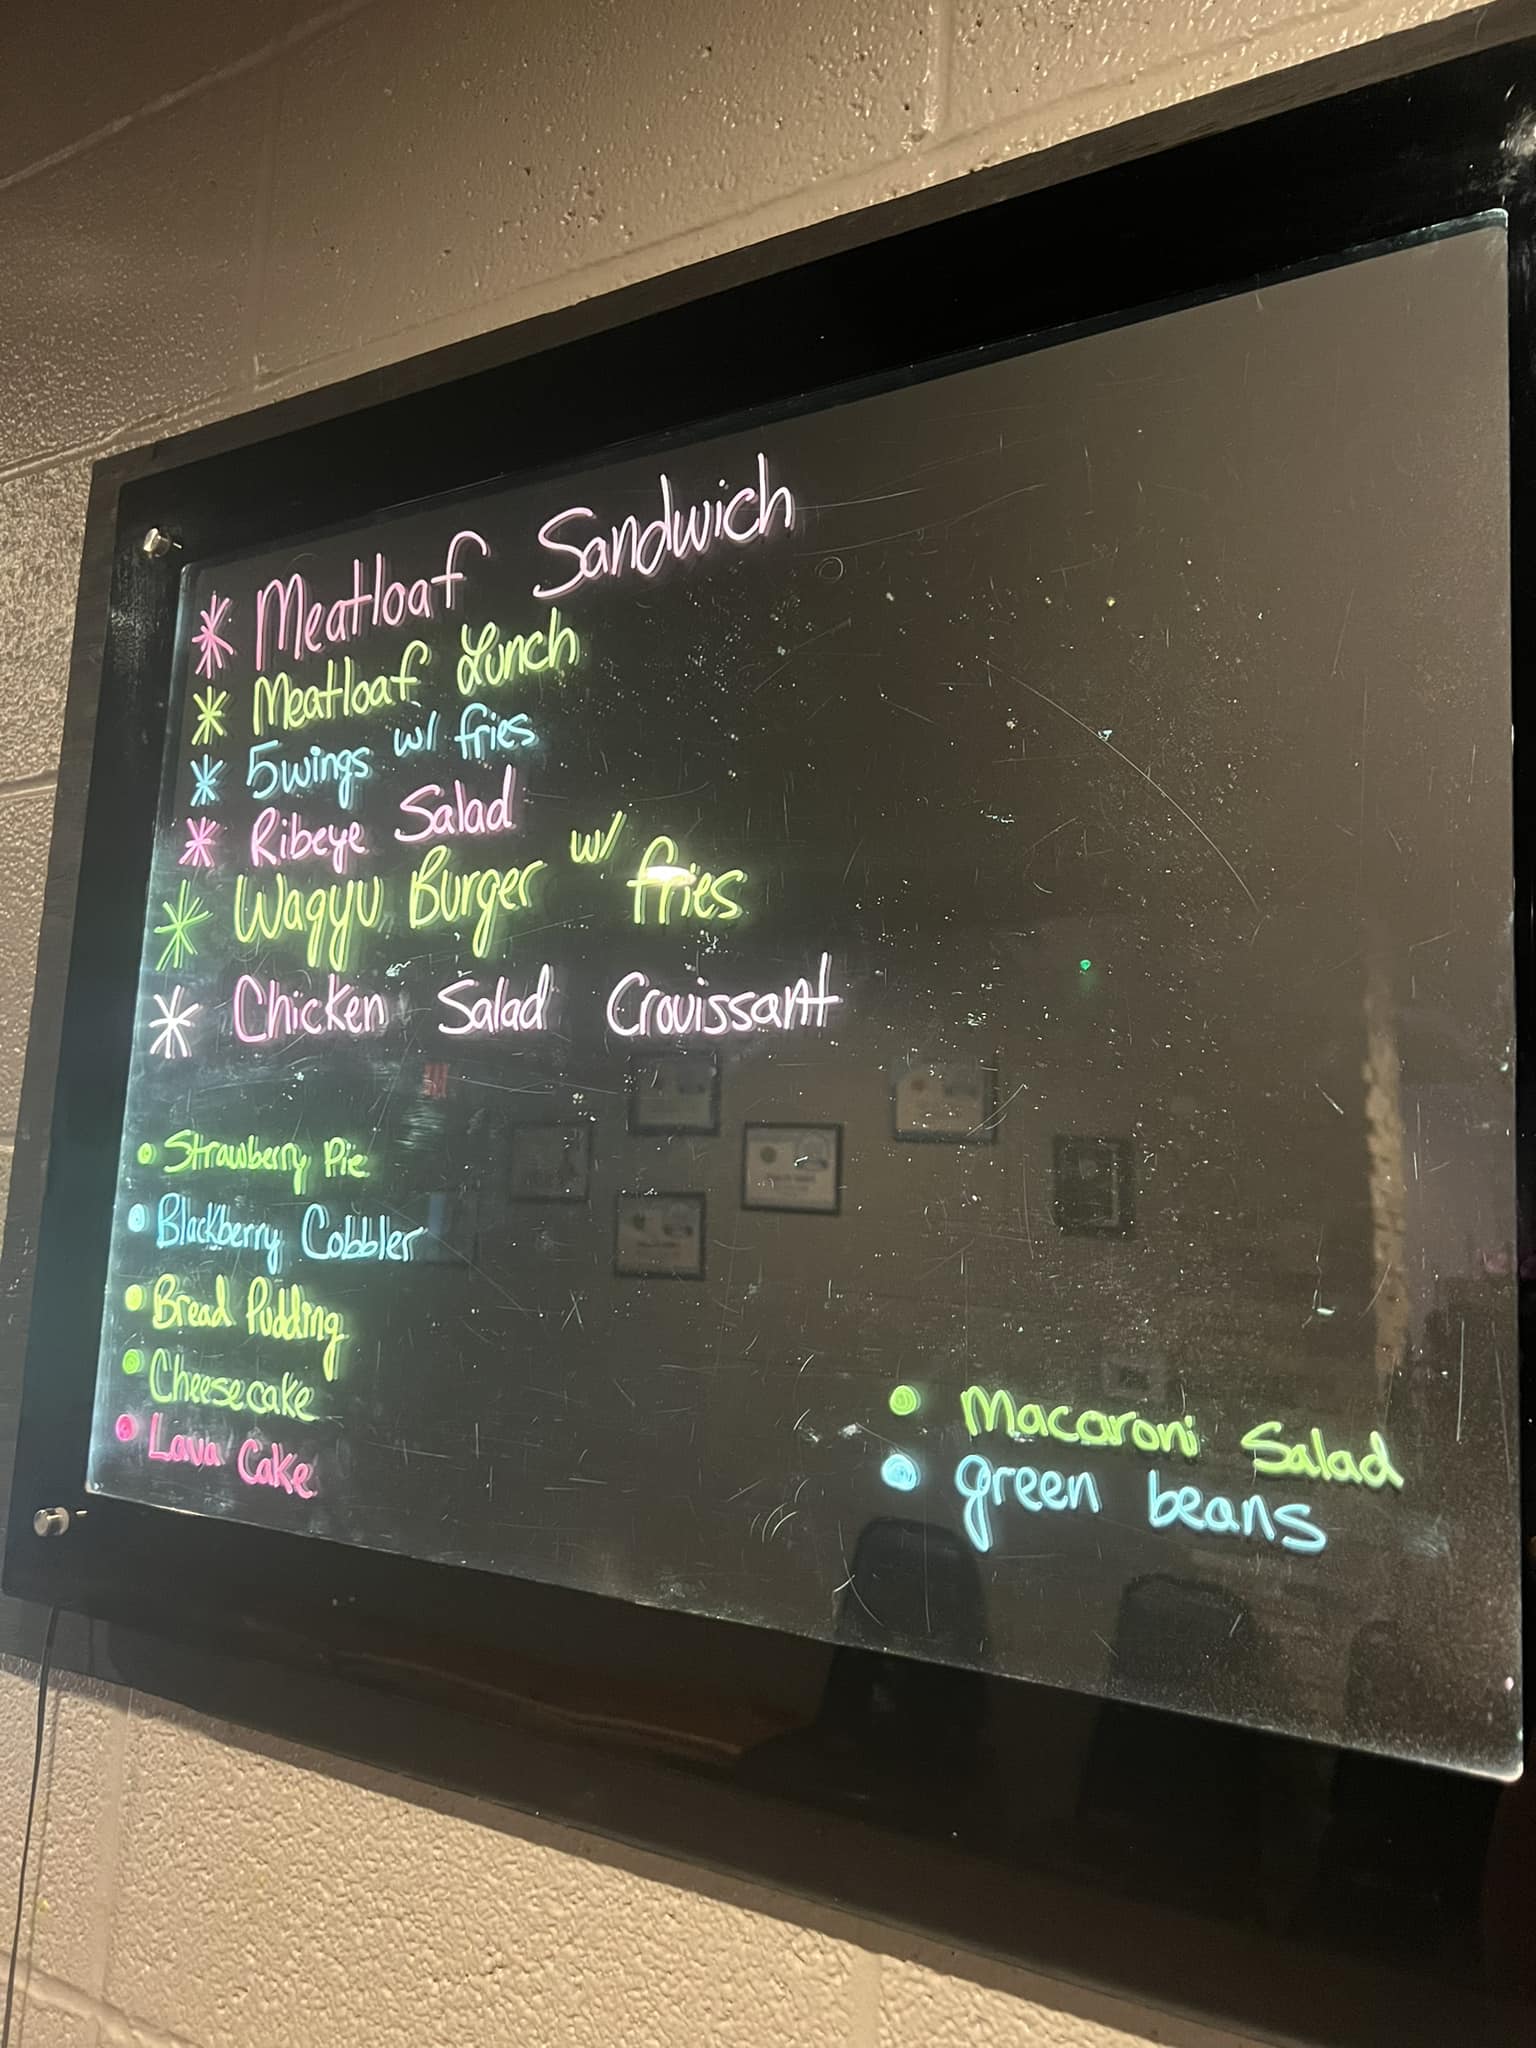 * Meatloaf Sandwich
* Meatloaf Lunch
* 5 wings w/ fries
* Ribeye Salad
* Wagyu Burger w/ fries
* Chicken Salad Crouissant
• Strawberry Pie
• Blackberry Cobbler
• Bread Pudding
• Cheesecake
• Lava Cake
• Macaroni Salad
• green beans